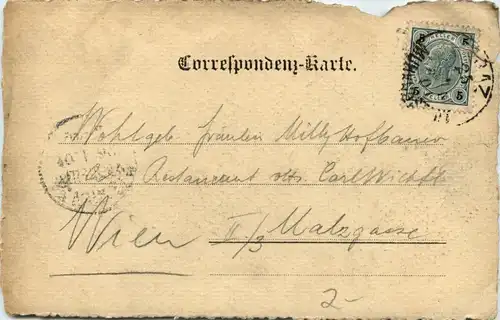 Correspondenz-Karte.
5 5
Wohlgeb Fräulein Milly Hofbauer
Restaurant Carl
Wien II/3 Malzgasse
2-